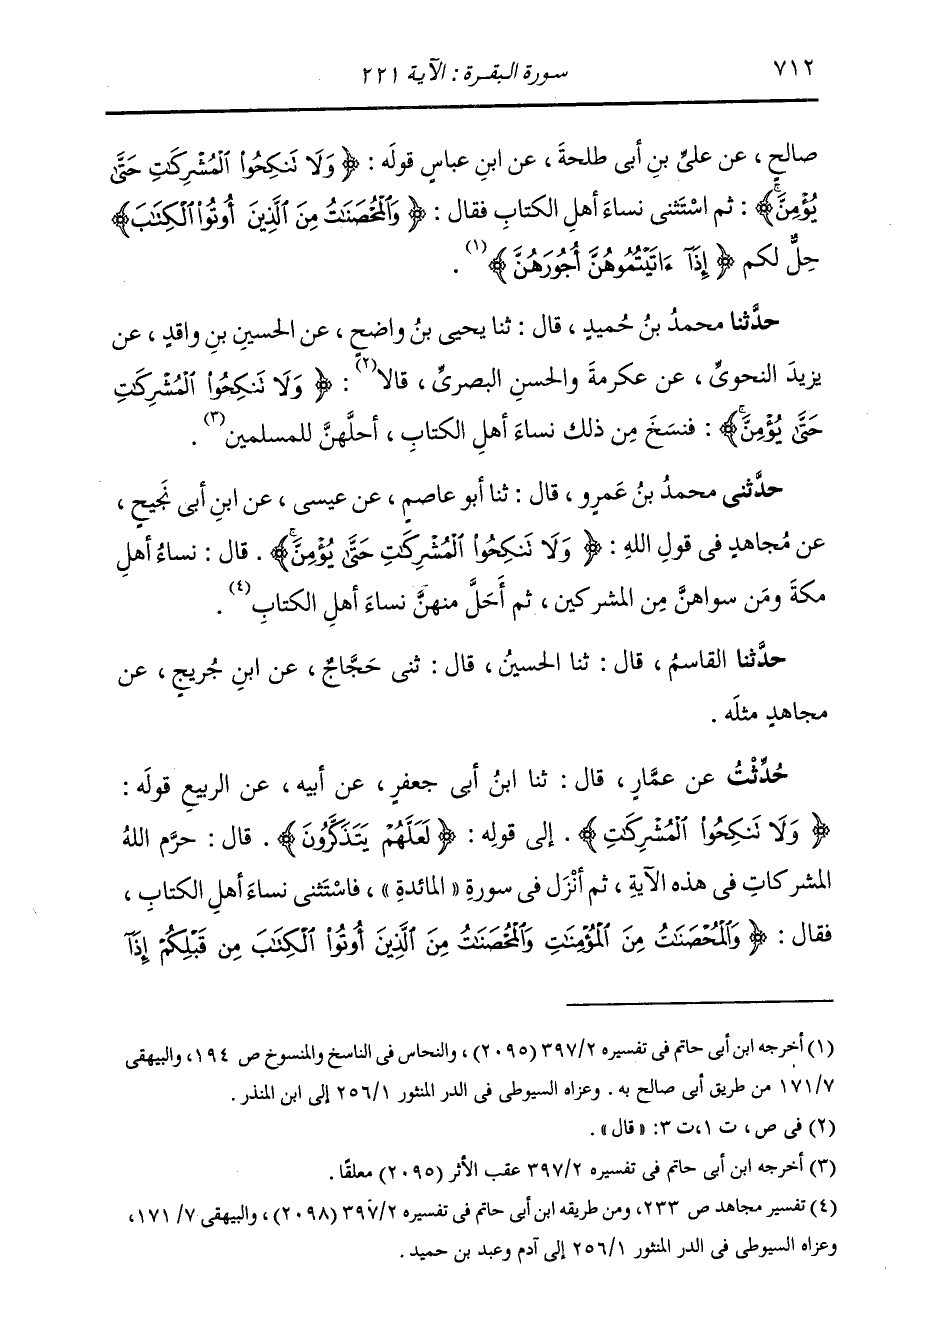 ٧١٢
سورة البقرة : الآية ٢٢١
صالحٍ ، عن علىِّ بنِ أبى طلحةَ ، عن ابنِ عباسٍ قولَه : ﴿ وَلَا نَنكِحُوا۟ ٱلْمُشْرِكَٰتِ حَتَّىٰ
يُؤْمِنَّ ۚ ﴾ : ثم اسْتَثنى نساءَ أهلِ الكتابِ فقال : ﴿ وَٱلْمُحْصَنَٰتُ مِنَ ٱلَّذِينَ أُوتُوا۟ ٱلْكِتَٰبَ ﴾
حِلٌّ لكم ﴿ إِذَآ ءَاتَيْتُمُوهُنَّ أُجُورَهُنَّ ﴾ (١) .
حدَّثنا محمدُ بنُ حُميدٍ ، قال : ثنا يحيى بنُ واضحٍ ، عن الحسينِ بنِ واقدٍ ، عن
يزيدَ النحوىِّ ، عن عكرمةَ والحسنِ البصرىِّ ، قالا(٢) : ﴿ وَلَا نَنكِحُوا۟ ٱلْمُشْرِكَٰتِ
حَتَّىٰ يُؤْمِنَّ ۚ ﴾ : فنسَخَ مِن ذلك نساءَ أهلِ الكتابِ ، أحلَّهنَّ للمسلمين(٣) .
حدَّثنى محمدُ بنُ عَمرٍو ، قال : ثنا أبو عاصمٍ ، عن عيسى ، عن ابنِ أبى نَجيحٍ ،
عن مُجاهدٍ فى قولِ اللهِ : ﴿ وَلَا نَنكِحُوا۟ ٱلْمُشْرِكَٰتِ حَتَّىٰ يُؤْمِنَّ ۚ ﴾ . قال : نساءُ أهلِ
مكةَ ومَن سواهنَّ مِن المشركين ، ثم أَحَلَّ منهنَّ نساءَ أهلِ الكتابِ(٤) .
حدَّثنا القاسمُ ، قال : ثنا الحسينُ ، قال : ثنى حَجَّاجٌ ، عن ابنِ جُريجٍ ، عن
مجاهدٍ مثلَه .
حُدِّثْتُ عن عمَّارٍ ، قال : ثنا ابنُ أبى جعفرٍ ، عن أبيه ، عن الربيعِ قولَه :
﴿ وَلَا نَنكِحُوا۟ ٱلْمُشْرِكَٰتِ ﴾ . إلى قولِه : ﴿ لَعَلَّهُمْ يَتَذَكَّرُونَ ﴾ . قال : حرَّم اللهُ
المشركاتِ فى هذه الآيةِ ، ثم أنْزَل فى سورةِ « المائدةِ » ، فاسْتَثنى نساءَ أهلِ الكتابِ ،
فقال : ﴿ وَٱلْمُحْصَنَٰتُ مِنَ ٱلْمُؤْمِنَٰتِ وَٱلْمُحْصَنَٰتُ مِنَ ٱلَّذِينَ أُوتُوا۟ ٱلْكِتَٰبَ مِن قَبْلِكُمْ إِذَآ
(١) أخرجه ابن أبى حاتم فى تفسيره ٣٩٧/٢ (٢٠٩٥) ، والنحاس فى الناسخ والمنسوخ ص ١٩٤ ، والبيهقى
١٧١/٧ من طريق أبى صالح به . وعزاه السيوطى فى الدر المنثور ٢٥٦/١ إلى ابن المنذر .
(٢) فى ص ، ت ١ ، ت ٣ : « قال » .
(٣) أخرجه ابن أبى حاتم فى تفسيره ٣٩٧/٢ عقب الأثر (٢٠٩٥) معلقًا .
(٤) تفسير مجاهد ص ٢٣٣ ، ومن طريقه ابن أبى حاتم فى تفسيره ٣٩٧/٢ (٢٠٩٨) ، والبيهقى ١٧١/٧ ،
وعزاه السيوطى فى الدر المنثور ٢٥٦/١ إلى آدم وعبد بن حميد .